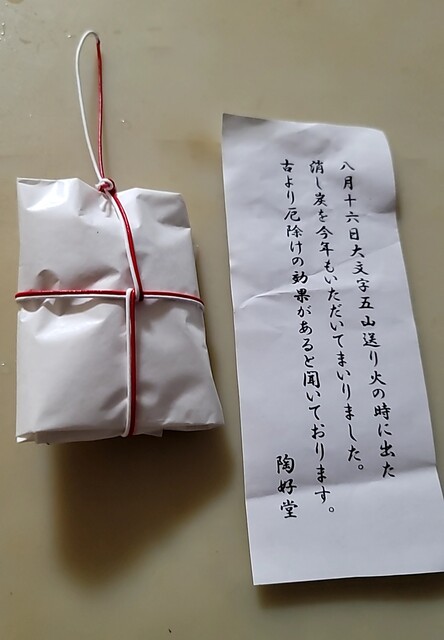 八月十六日大文字五山送り火の時に出た
消し炭を今年もいただいてまいりました。
古より厄除けの効果があると聞いております。
陶好堂